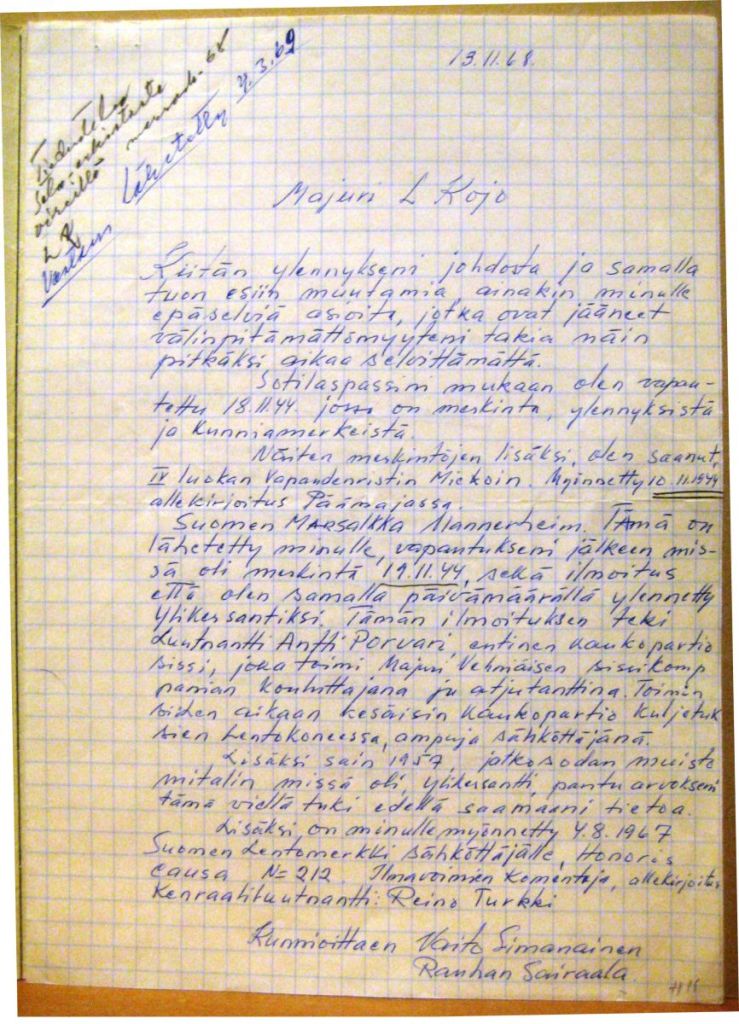 13.11.68.
Tiedustelu
Sota-arkistosta
vireillä
-68
L K
Vastaus
Lähetetty 4.3.69
Majuri L Kojo
Kiitän ylennykseni johdosta ja samalla
tuon esiin muutamia, ainakin minulle
epäselviä asioita, jotka ovat jääneet
välinpitämättömyyteni takia näin
pitkäksi aikaa selvittämättä.
Sotilaspassini mukaan olen vapau-
tettu 18.11.44. jossa on merkintä, ylennyksistä
ja Kunniamerkeistä.
Näiten merkintöjen lisäksi, olen saanut,
IV luokan Vapaudenristin Miekoin. Myönnetty 10.11.1944
allekirjoitus Päämajassa.
Suomen Marsalkka Mannerheim. Tämä on
lähetetty minulle, vapautukseni jälkeen mis-
sä oli merkintä 19.11.44, sekä ilmoitus
että olen samalla päivämäärällä ylennetty
Ylikersantiksi. Tämän ilmoituksen teki
Luutnantti Antti Porvari, entinen kaukopartio
sissi, joka toimi Majuri Vehniäisen sissikomp
panian kouluttajana ja atjutanttina. Toimin
siiden aikaan kesäisin kaukopartio kuljetuk
sien Lentokoneessa, ampuja sähköttäjänä.
Lisäksi sain 1957, jatkosodan muisto
mitalin missä oli, ylikersantti, pantu arvokseni
tämä vieltä tuki edellä saamaani tietoa.
Lisäksi on minulle myönnetty 4.8.1967
Suomen Lentomerkki sähköttäjälle, Honoris
causa N= 212. Ilmavoimien Komentaja, allekirjoitus
Kenraaliluutnantti: Reino Turkki
Kunnioittaen Voito Simanainen
Rauhan Sairaala.